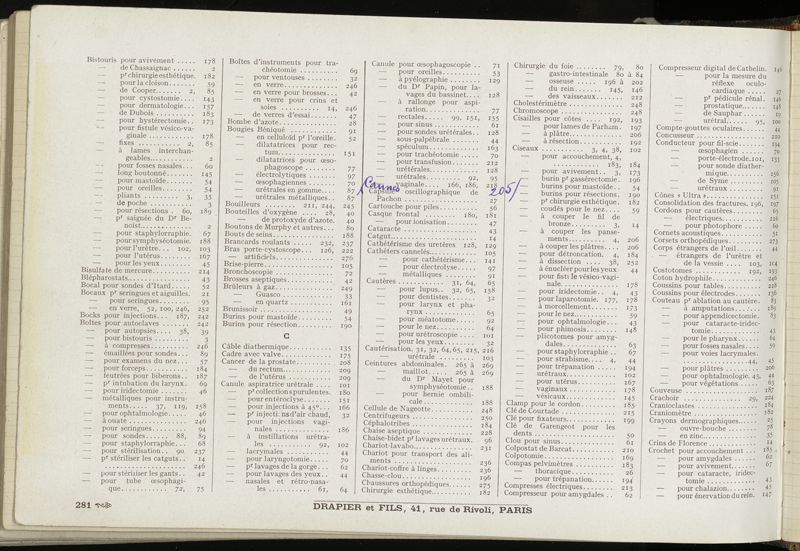 Bistouris pour avivement ..... 178
— de Chassaignac ...... 2
— pr chirurgie esthétique. 182
— pour la cloison ...... 59
— de Cooper ...... 2, 85
— pour cystostomie .... 143
— pour dermatologie.... 137
— de Dubois ........ 185
— pour hystérectomie .. 173
— pour fistule vésico-va-
ginale ........... 178
— fixes .......... 2, 85
— à lames interchan-
geables........... 2
— pour fosses nasales .. 60
— long boutonné ...... 145
— pour mastoïde ...... 54
— pour oreilles ....... 54
— pliants ....... 3, 35
— de poche .......... 3
— pour résections . 60, 189
— pr saignée du Dr Be-
noist............ 2
— pour staphylorraphie. 67
— pour symphyséotomie. 188
— pour l'urètre... 102, 103
— pour l'utérus ...... 167
— pour les yeux ...... 45
Bisulfate de mercure ........ 214
Blépharostats............. 43
Bocal pour sondes d'Itard .... 52
Bocaux pr seringues et aiguilles. 21
— pour seringues ...... 95
— en verre, 52, 100, 246, 252
Bocks pour injections... 187, 242
Boîtes pour autoclaves ...... 242
— pour autopsies.... 38, 39
— pour bistouris ....... 3
— à compresses........ 246
— émaillées pour sondes.. 89
— pour examens du nez.. 57
— pour forceps ........ 184
— feutrées pour biberons.. 187
— pr intubation du larynx. 69
— pour iridectomie ..... 46
— métalliques pour instru-
ments..... 37, 119, 158
— pour ophtalmologie.... 46
— à ouate ............ 246
— pour seringues ....... 94
— pour sondes..... 88, 89
— pour staphylorraphie.. 68
— pour stérilisation.. 90 237
— pr stériliser les catguts.. 14
246
— pour stériliser les gants.. 42
— pour tube œsophagi-
que........... 72, 75
Boîtes d'instruments pour tra-
chéotomie ......... 69
— pour ventouses ....... 32
— en verre........... 246
— en verre pour brosses... 42
— en verre pour crins et
soies ......... 14, 246
— de verres d'essai...... 47
Bombe d'azote............. 28
Bougies Béniqué ........... 91
— en celluloïd pr l'oreille. 52
— dilatatrices pour rec-
tum........... 151
— dilatatrices pour œso-
phagoscope ....... 77
— électrolytiques ...... 97
— œsophagiennes ...... 70
— urétrales en gomme.. 87
— urétrales métalliques.. 87
Bouilleurs ........ 211, 244, 245
Bouteilles d'oxygène .... 28, 40
— de protoxyde d'azote. 40
Boutons de Murphy et autres.. 80
Bouts de seins............. 188
Brancards roulants .... 232, 237
Bras porte-cystoscope .. 126, 222
— artificiels........... 276
Brise-pierre.............. 105
Bronchoscopie ............ 72
Brosses aseptiques ......... 42
Brûleurs à gaz............ 249
— Guasco .......... 33
— en quartz ........ 161
Brunissoir ............... 49
Burins pour mastoïde ....... 54
Burins pour résection....... 190
C
Câble diathermique ........ 135
Cadre avec valve.......... 175
Cancer de la prostate........ 208
— du rectum........... 209
— de l'utérus ......... 209
Canule aspiratrice urétrale .. 101
— pr collections purulentes. 180
— pour entéroclyse ..... 151
— pour injections à 45°... 166
— pr inject: nsd'air chaud, 32
— pour injections vagi-
nales ........... 186
— à instillations urétra-
les ......... 92, 102
— lacrymales ......... 44
— pour laryngotomie .... 70
— pr lavages de la gorge.. 62
— pour lavages des yeux.. 44
— nasales et rétro-nasa-
les ......... 61, 64
Canule pour œsophagoscopie .. 71
— pour oreilles......... 53
— à pyélographie ...... 129
— du Dr Papin, pour la-
vages du bassinet... 128
— à rallonge pour aspi-
ration........... 77
— rectales..... 99, 151, 155
— pour sinus ......... 61
— pour sondes urétérales.. 128
— sous-palpébrale ...... 44
— spéculum.......... 163
— pour trachéotomie .... 70
— pour transfusion ..... 212
— urétérales .......... 128
— urétrales ........ 92, 95
— vaginale.... 166, 186, 252
Cannes 205
Capsule oscillographique de
Pachon ............. 27
Cartouche pour piles ....... 56
Casque frontal ........ 180, 181
— pour ionisation ...... 47
Cataracte ................ 43
Catgut.................. 14
Cathétérisme des uretères 128, 129
Cathéters cannelés......... 105
— pour cathétérisme..... 141
— pour électrolyse ...... 97
— métalliques ......... 91
Cautères .......... 31, 64, 65
— pour lupus... 32, 65, 158
— pour dentistes........ 32
— pour larynx et pha-
rynx ........... 65
— pour méatotome ...... 92
— pour le nez.......... 64
— pour urétroscopie .... 101
— pour les yeux ....... 32
Cautérisation. 31, 32, 64, 65, 215, 216
— urétrale ........... 103
Ceintures abdominales.. 265 à 269
— maillot....... 265 à 269
— du Dr Mayet pour
symphyséotomie.. 188
— pour hernie ombili-
cale ........... 188
Cellule de Nageotte ........ 248
Centrifugeurs ............ 250
Céphalotribes ............ 184
Chaise aseptique .......... 228
Chaise-bidet pr lavages urétraux. 96
Chariot-lavabo............ 231
Chariot pour transport des ali-
ments ............. 236
Chariot-coffre à linges....... 236
Chasse-clou.............. 196
Chaussures orthopédiques.... 275
Chirurgie esthétique ........ 182
Chirurgie du foie ...... 79, 80
— gastro-intestinale 80 à 84
— osseuse ..... 196 à 202
— du rein ..... 145, 146
— des vaisseaux....... 212
Cholestérimètre ........... 248
Chromoscope ............. 248
Cisailles pour côtes .... 192, 193
— pour lames de Parham. 197
— à plâtre.......... 206
— à résection ........ 192
Ciseaux ....... 3, 4, 38, 102
— pour accouchement, 4,
183, 184
— pour avivement.. 3, 173
— burin pr gassérectomie. 196
— burins pour mastoïde.. 54
— burins pour résections. 190
— pr chirurgie esthétique. 182
— coudés pour le nez.... 59
— à couper le fil de
bronze...... 3, 14
— à couper les panse-
ments...... 4, 206
— à couper les plâtres .. 206
— pour détroncation. 4, 184
— à dissection .... 38, 252
— à énucléer pour les yeux. 44
— pour fistule vésico-vagi-
nale............. 178
— pour iridectomie.. 4, 43
— pour laparotomie. 177, 178
— à morcellement..... 173
— pour le nez......... 59
— pour ophtalmologie... 43
— pour phimosis...... 148
— plicotomes pour amyg-
dales ........... 63
— pour staphylorraphie.. 67
— pour strabisme.... 4, 44
— pour trépanation .... 194
— urétraux......... 102
— pour utérus ....... 167
— vaginaux ......... 178
— vésicaux.......... 145
Clamp pour le cordon....... 185
Clef de Courtade .......... 215
Clé pour fixateurs......... 199
Clé de Garengeot pour les
dents .............. 50
Clou pour sinus........... 61
Colpostat de Barcat ........ 210
Colpotomie .............. 169
Compas pelvimètres........ 183
— thoracique ......... 26
— pour trépanation ..... 194
Compresses électriques...... 213
Compresseur pour amygdales .. 62
Compresseur digital de Cathelin. 146
— pour la mesure du
réflexe oculo-
cardiaque ...... 27
— pr pédicule rénal. 146
— prostatique...... 148
— de Sauphar ..... 19
— urétral...... 95, 100
Compte-gouttes oculaires..... 44
Concusseur .............. 220
Conducteur pour fil-scie...... 194
— œsophagien ....... 70
— porte-électrode.101, 133
— pour sonde diather-
mique........... 156
— de Syme ......... 91
— urétraux ......... 91
Cônes « Ultra »............ 151
Consolidation des fractures. 196, 197
Cordons pour cautères ...... 65
— électriques......... 216
— pour photophore ..... 60
Cornets acoustiques......... 51
Corsets orthopédiques....... 273
Corps étrangers de l'œil..... 44
— étrangers de l'urètre et
de la vessie .... 103, 104
Costotomes ......... 192, 193
Coton hydrophile ......... 246
Coussins pour tables ....... 228
Coussins pour électrodes..... 136
Couteau pr ablation au cautère. 83
— à amputations....... 189
— pour appendicectomie 83
— pour cataracte-iridec-
tomie ........... 43
— pour le pharynx...... 64
— pour fosses nasales .... 59
— pour voies lacrymales.
44, 45
— pour plâtres ........ 206
— pour ophtalmologie.45, 44
— pour végétations ..... 63
Couveuse ............... 187
Crachoir .......... 29, 224
Cranioclastes ............ 184
Craniomètre ............. 182
Crayons dermographiques.... 23
— ouvre-bouche ....... 78
— en zinc........... 35
Crins de Florence ......... 44
Crochet pour accouchement .. 185
— pour amygdales ...... 62
— pour avivement...... 67
— pour cataracte, iridec-
tomie .......... 43
— pour chalazion....... 45
— pour énervation du rein. 147
281
DRAPIER et FILS, 41, rue de Rivoli, PARIS